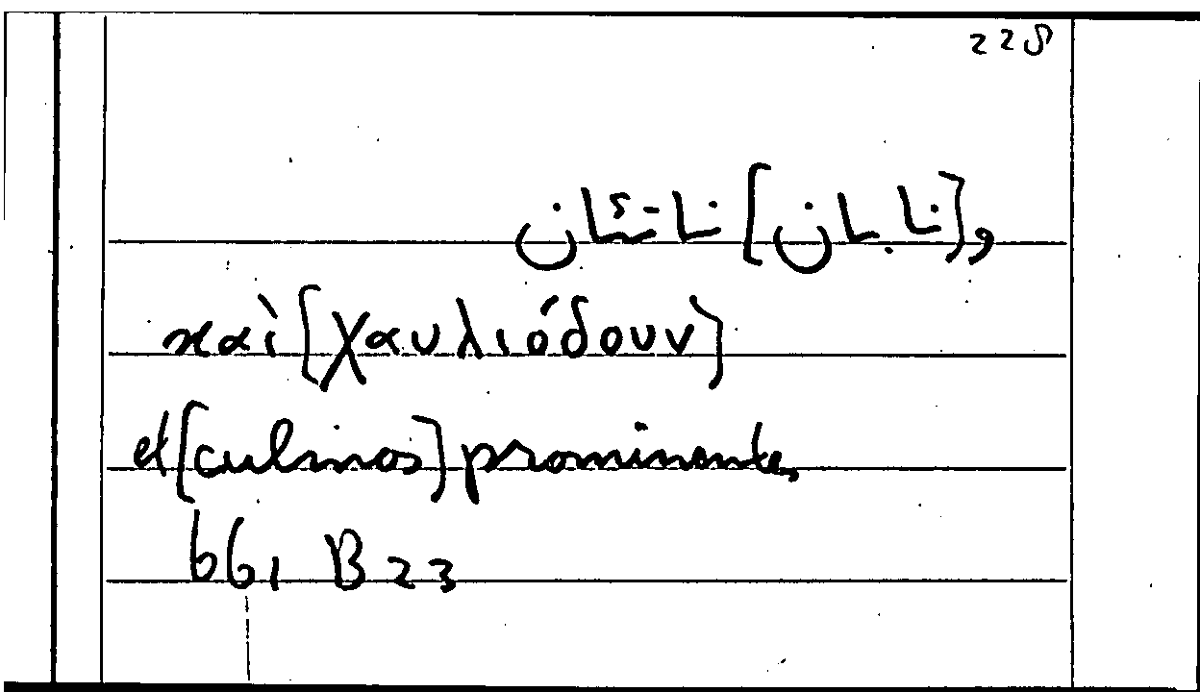 228
و[نابان] ناتئان
καὶ [χαυλιόδουν]
et [culmos] prominentes
661 B 23